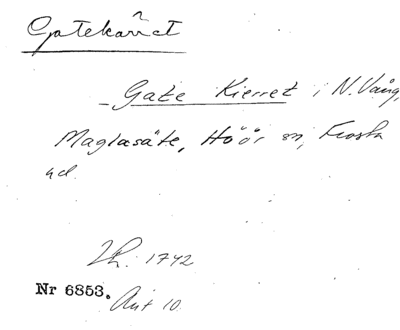 Gatekärret
Gate Kierret i N. Vång,
Maglasäte, Höör sn, Frosta
hd.
1742
Nr 6853. Akt 10